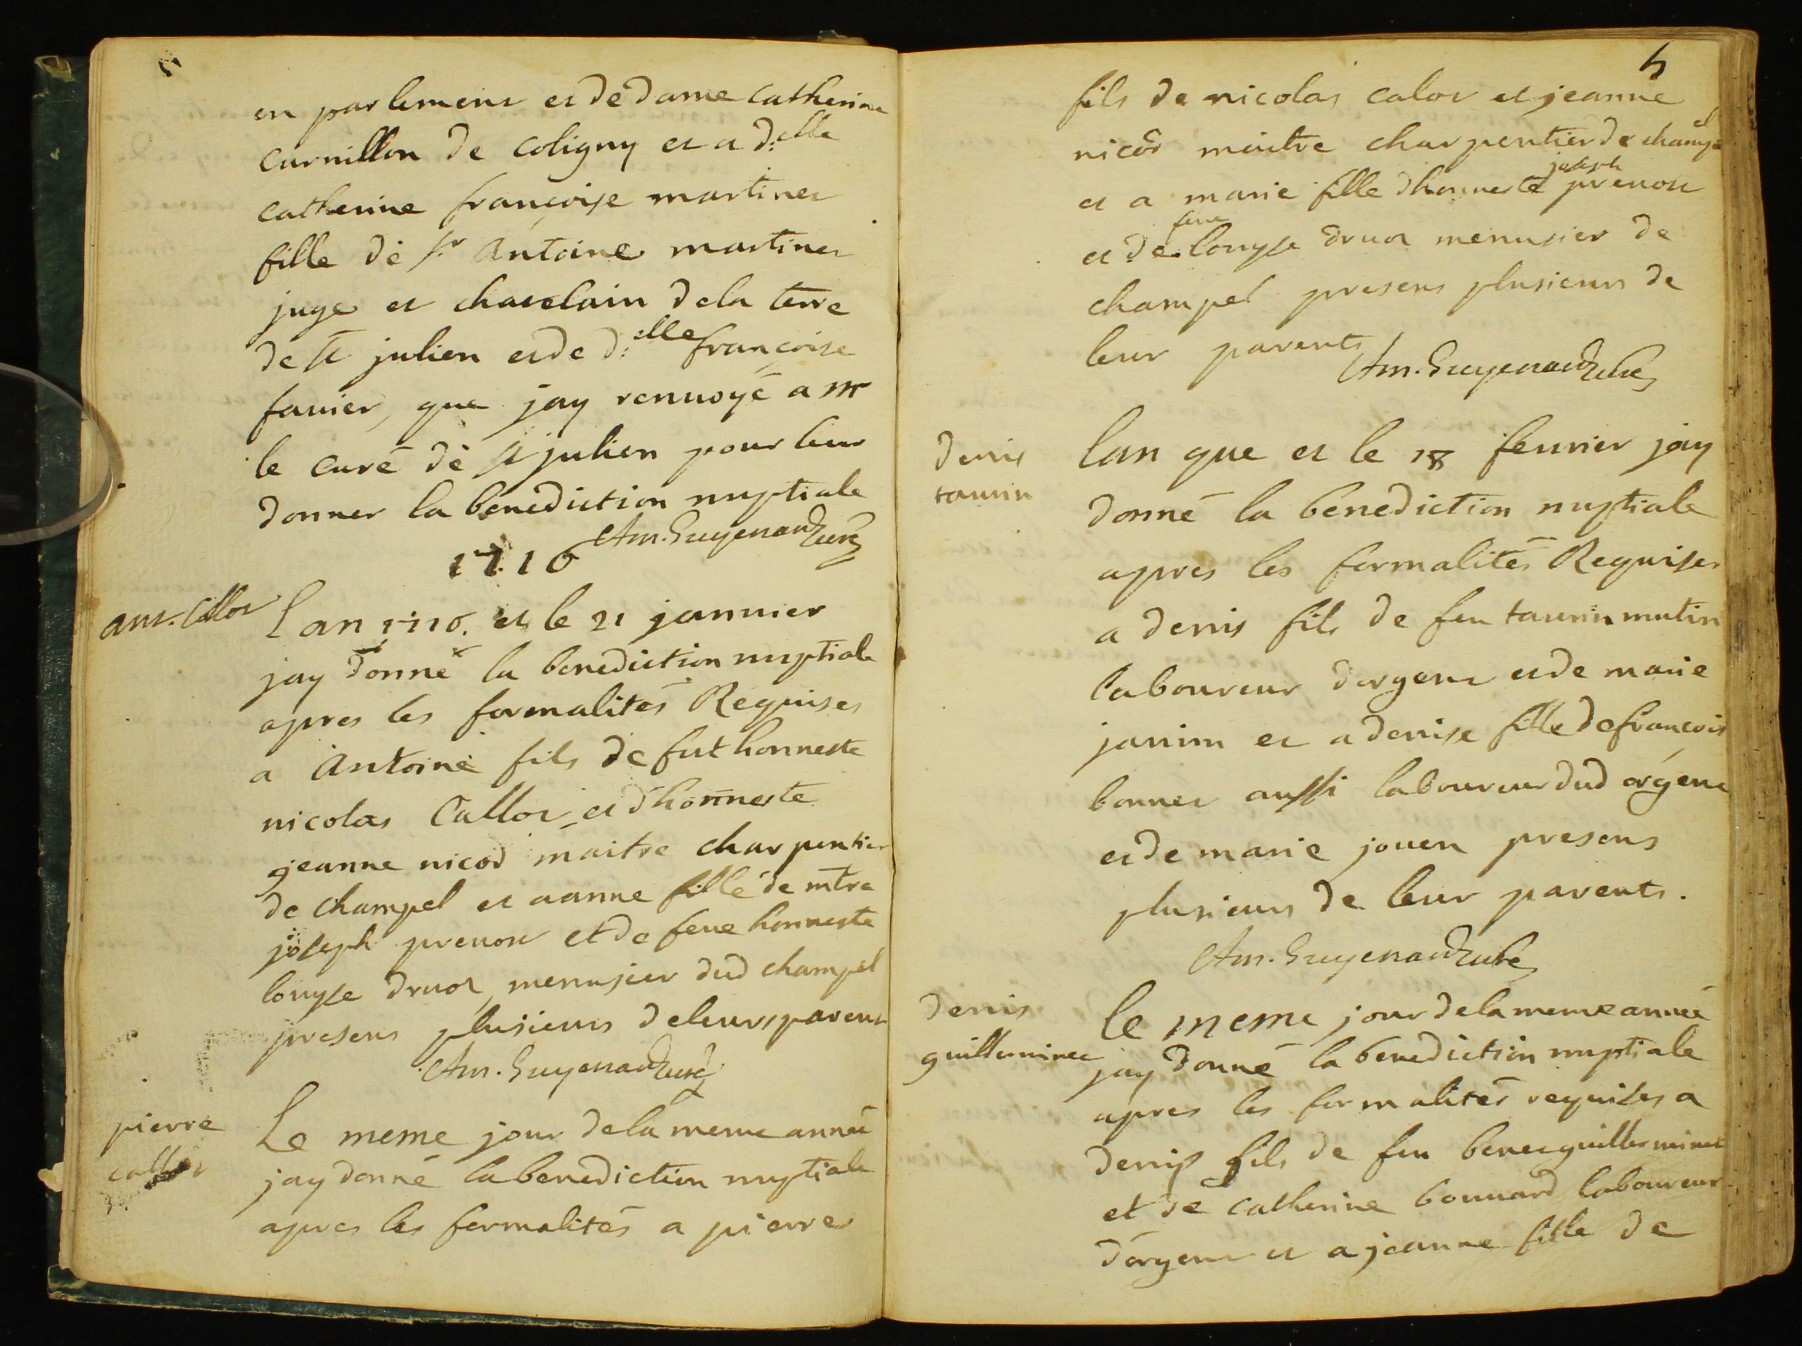 en parlement et de dame Catherine
Curnillon de Coligny et a d.elle
Catherine françoise martinet
fille de sr Antoine martinet
juge et chatelain dela terre
de st julien et de d.elle françoise
favier, que jay renvoyé a mr
le curé de st julien pour leur
donner la benediction nuptiale
Am. Guyenard curé
1716
ant. Callot
Lan 1716. et le 21 janvier
jay donné la benediction nuptiale
apres les formalités Requises
a Antoine fils de fut honneste
nicolas Callot et d'honneste
jeanne nicod maitre charpentier
de champel et a anne fille de mtre
joseph prevost et de feue honneste
louyse druot menusier dud champel
presens plusieurs de leurs parent
Am. Guyenard curé
pierre
callot
Le meme jour dela meme année
jay donné la benediction nuptiale
apres les formalités a pierre
5
fils de nicolas calot et jeanne
nicod maitre charpentier de champel
et a marie fille dhonneste joseph prevost
et de feue louyse druot menusier de
champel presens plusieurs de
leur parents
Am. Guyenard curé
denis
taurin
lan que et le 18 fevrier jay
donné la benediction nuptiale
apres les formalités Requises
a denis fils de feu taurin mutin
laboureur dorgent et de marie
janin et a denise fille de francois
bonnet aussi laboureur dud orgent
et de marie jouen presens
plusieurs de leur parents.
Am. Guyenard curé
denis
guilleminet
le meme jour dela meme année
jay donné la benediction nuptiale
apres les formalités requises a
denis fils de feu benet guilleminet
et de catherine bonnard laboureur
d'orgent et a jeanne fille de